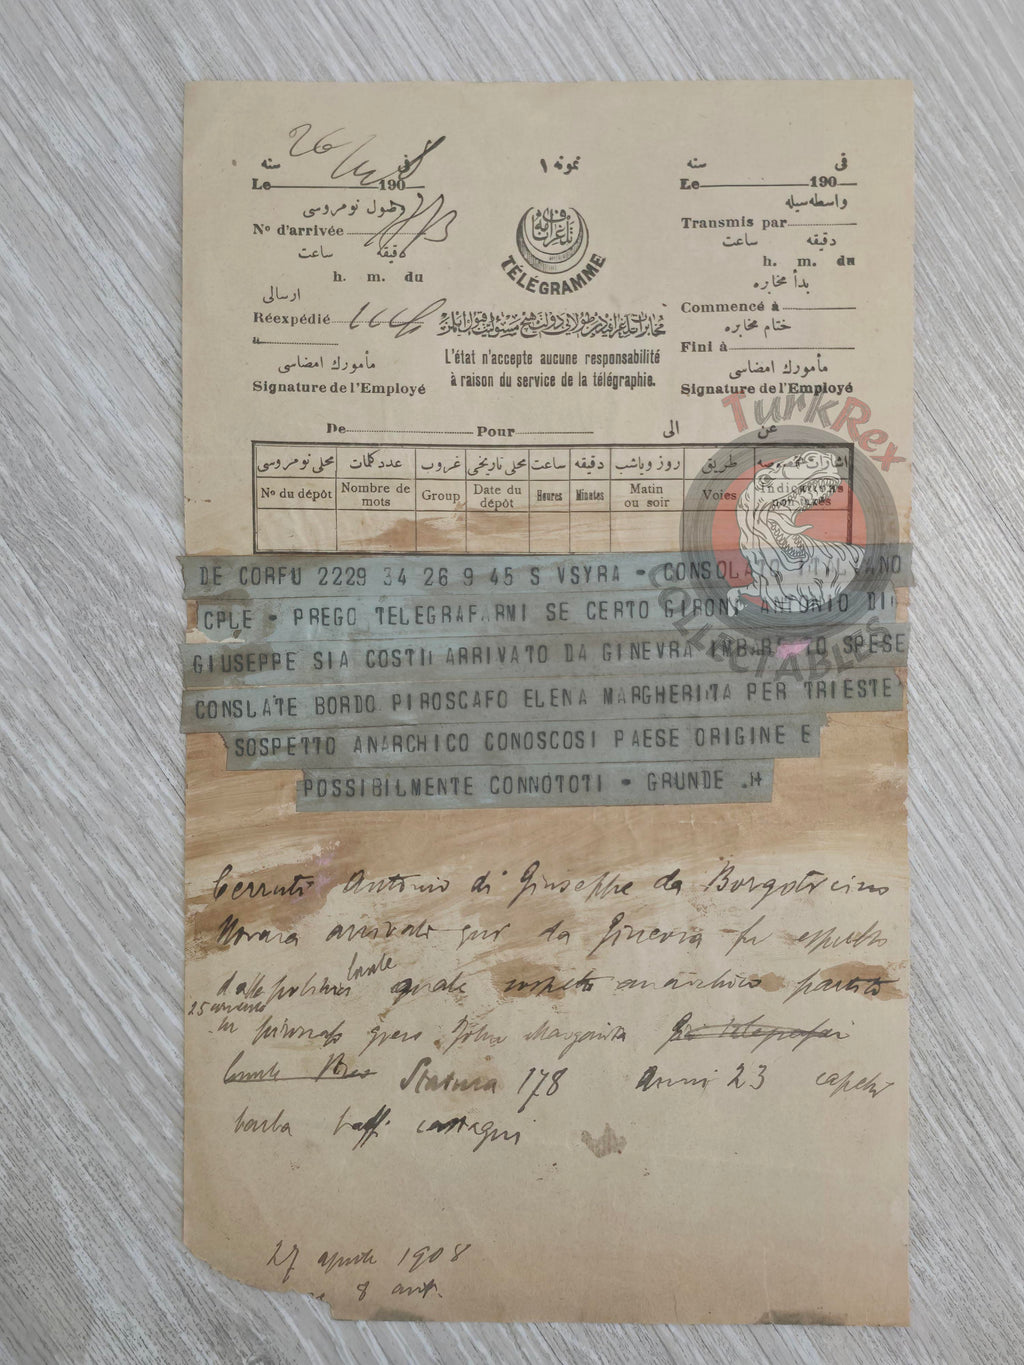 26
سنه فى
Le 190
نمونه ١
سنه فى
Le 190
طول نومروسى
Nº d'arrivée
دقيقه ساعت
h. m. du
ارسالى
Réexpédié
à
مأمورك امضاسى
Signature de l'Employé
TÉLÉGRAMME
L'état n'accepte aucune responsabilité
à raison du service de la télégraphie.
واسطه‌سيله
Transmis par
دقيقه ساعت
h. m. du
بدأ مخابره
Commencé à
ختام مخابره
Fini à
مأمورك امضاسى
Signature de l'Employé
De Pour الى عن
محلى نومروسى عدد كلمات غروب محلى تاريخى ساعت دقيقه روز وياشب طريق اشارات مخصوصه
Nº du dépôt Nombre de mots Group Date du dépôt Heures Minutes Matin ou soir Voies Indications non taxées
TurkRex
COLLECTABLES
DE CORFU 2229 34 26 9 45 S VSYRA - CONSOLATO ITALIANO
CPLE - PREGO TELEGRAFARMI SE CERTO GIRONI ANTONIO DI
GIUSEPPE SIA COSTI ARRIVATO DA GINEVRA IMBARCATO SPESE
CONSLATE BORDO PIROSCAFO ELENA MARGHERITA PER TRIESTE
SOSPETTO ANARCHICO CONOSCOSI PAESE ORIGINE E
POSSIBILMENTE CONNOTOTI - GRUNDE .
Cerruti Antonio di Giuseppe da Borgoticino
Novara arrivato qui da Ginevra fu espulso
dalla polizia locale quale sospetto anarchico partito
25 corrente
Margarita
Statura 178 Anni 23 capelli
barba baffi castagni
27 aprile 1908
8 ant.